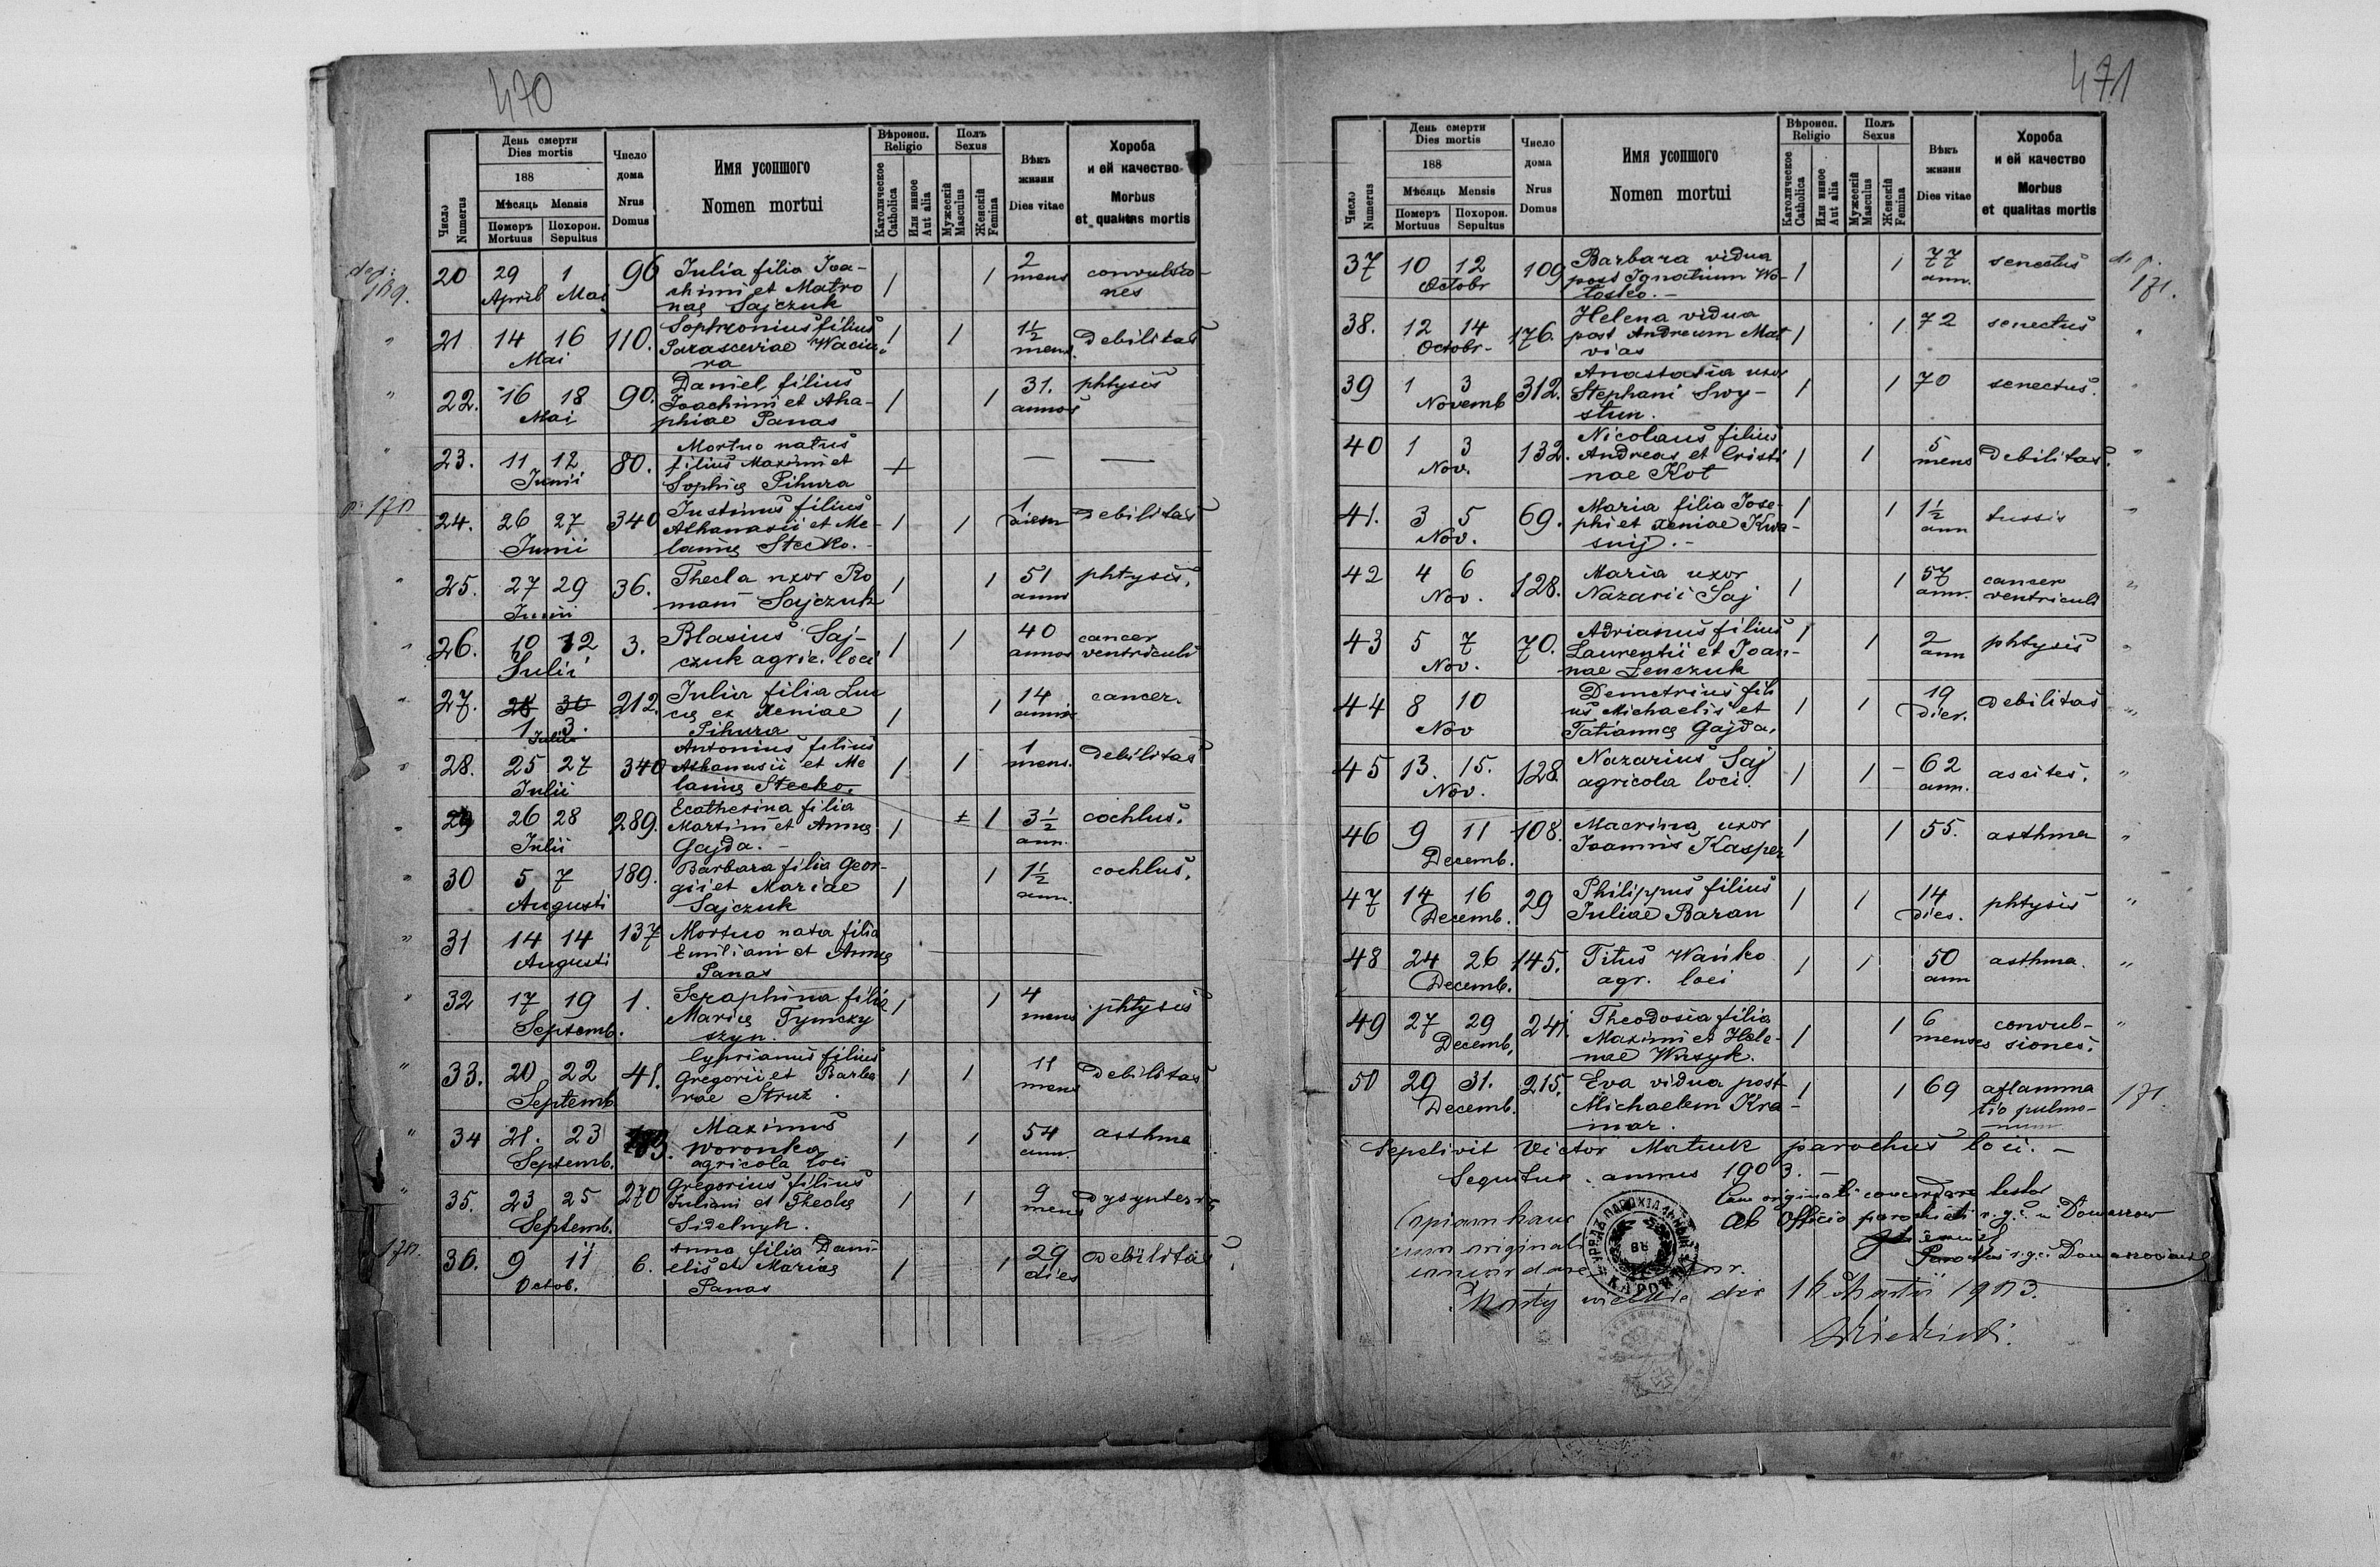 470
День смерти
Dies mortis
188
Мѣсяць Mensis
Число
Numerus
Померъ
Mortuus
Похорон.
Sepultus
Число
дома
Nrus
Domus
Имя усопшого
Nomen mortui
Вѣроисп.
Religio
Католическое
Catholica
Или инное
Aut alia
Полъ
Sexus
Мужескій
Masculus
Женскій
Femina
Вѣкъ
жизни
Dies vitae
Хороба
и ей качество
Morbus
et qualitas mortis
169.
20 29 1 96 Julia filia Joa- 1 1 2 convulsio-
April Mai chimi et Matro mens nes
nae Sajczuk
21 14 16 110. Sophronius filius 1 1 1½ Debilitas
Mai Parasceviae Waciu- mens.
ra
22. 16 18 90. Daniel filius 1 1 31. phtysis
Mai Joachimi et Aha- annos
phiae Panas
23. 11 12 80. Mortuo natus — —
Junii filius Maximi et
Sophiae Pihura
170
24. 26 27 340 Justinus filius 1 1 1 Debilitas
Junii Athanasii et Me- diem
laniae Stecko.-
25. 27 29 36. Thecla uxor Ro 1 1 51 phtysis.
Junii mani Sajczuk anni
26. 10 12 3. Blasius Saj- 1 1 40 cancer
Julii czuk agric. loci annos ventriculi
27. 28 30 212. Julia filia Lu 1 1 14 cancer.
1 3. cae et Xeniae
Julii Pihura
28. 25 27 340 Antonius filius 1 1 1 Debilitas
Julii Athanasii et Me mens.
laniae Stecko.
29 26 28 289. Ecatherina filia 1 1 1 3½ cochlus.
Julii Maximi et Annae ann.
Gajda. -
30 5 7 189. Barbara filia Geor- 1 1 1½ cochlus.
Augusti gii et Mariae ann.
Sajczuk
31 14 14 137 Mortuo nata filia
Augusti Emiliani et Annae
Panas
32 17 19 1. Seraphina filia 1 1 4 phtysis
Septemb. Mariae Tymczy mens
szyn.
33. 20 22 41. Cyprianus filius 1 1 11 Debilitas
Septemb Gregorii et Barba mens
rae Struz.
34 21. 23 Maximus 1 1 54 asthma
Septemb. Woronka ann.
agricola loci
35. 23 25 270 Gregorius filius 1 1 9
Septemb. Juliani et Theclae mens
Sidelnyk.
170.
36. 9 11 6. Anna filia Dani- 1 1 29 Debilitas
Octob. elis et Mariae dies
Panas
471
День смерти
Dies mortis
188
Мѣсяць Mensis
Число
Numerus
Померъ
Mortuus
Похорон.
Sepultus
Число
дома
Nrus
Domus
Имя усопшого
Nomen mortui
Вѣроисп.
Religio
Католическое
Catholica
Или инное
Aut alia
Полъ
Sexus
Мужескій
Masculus
Женскій
Femina
Вѣкъ
жизни
Dies vitae
Хороба
и ей качество
Morbus
et qualitas mortis
37 10 12 109 Barbara vidua 1 1 77 senectus
Octobr post Ignatium Wo- ann. 171.
losko.-
38. 12 14 176. Helena vidua 1 1 72 senectus
Octobr- post Andreum Mat
vias
39 1 3 312. Anastasia uxor 1 1 70 senectus.
Novemb Stephani Swy-
stun.
40 1 3 132. Nicolaus filius 1 1 5 Debilitas.
Nov. Andreas et Cristi mens
nae Kot
41. 3 5 69. Maria filia Jose- 1 1 1½ tussis
Nov. phi et Xeniae Kwa- ann
snij.-
42 4 6 128. Maria uxor 1 1 57 cancer
Nov. Nazarii Saj ann. ventriculi
43 5 7 70. Adrianus filius 1 1 2 phtysis
Nov. Laurentii et Joan- ann
nae Lenczuk
44 8 10 Demetrius fili 1 1 19 Debilitas
Nov us Michaelis et dier.
Tatiannae Gajda.
45 13. 15. 128. Nazarius Saj 1 1 62 ascites.
Nov. agricola loci. ann.
46 9 11 108. Macrina uxor 1 1 55. asthma
Decemb. Joannis Kasper
47 14 16 29 Philippus filius 1 1 14 phtysis
Decemb. Juliae Baran dies.
48 24 26 145. Titus Wańko 1 1 50 asthma.
Decemb. agr. loci ann
49 27 29 241. Theodosia filia 1 1 6 convul-
Decemb. Maximi et Hele- menses siones.
nae Wasyk.
50 29 31. 215. Eva vidua post 1 1 69 aflamma 171
Decemb. Michaelem Kra- tio pulmo-
mar. num
Sepelivit Victor Matiuk parochus loci. -
Sequitur annus 1903. -
Cum originali concordare testor
Copiam hanc Ab Officio parochiali r.g.c. in
cum originali
concordare
Mosty wielkie die 16 Martii 1903.